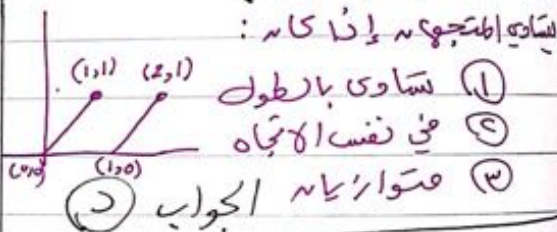 يتساوى المتجهان إذا كان :
(1,1) (2,1)
① تساوى بالطول
② في نفس الاتجاه
(0,0) (1,0)
③ متوازيان
الجواب د